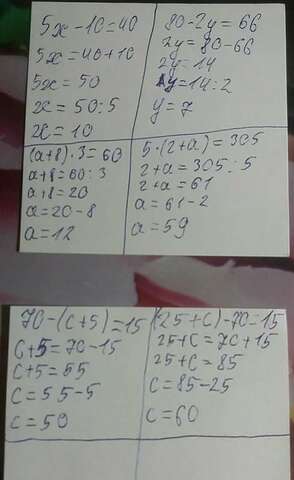 5x - 10 = 40
5x = 40 + 10
5x = 50
x = 50 : 5
x = 10
80 - 2y = 66
2y = 80 - 66
2y = 14
y = 14 : 2
y = 7
(a+8) · 3 = 60
a+8 = 60 : 3
a+8 = 20
a = 20 - 8
a = 12
5 · (2+a) = 305
2+a = 305 : 5
2+a = 61
a = 61 - 2
a = 59
70 - (c+5) = 15
c+5 = 70 - 15
c+5 = 55
c = 55 - 5
c = 50
(25+c) - 70 = 15
25+c = 70 + 15
25+c = 85
c = 85 - 25
c = 60